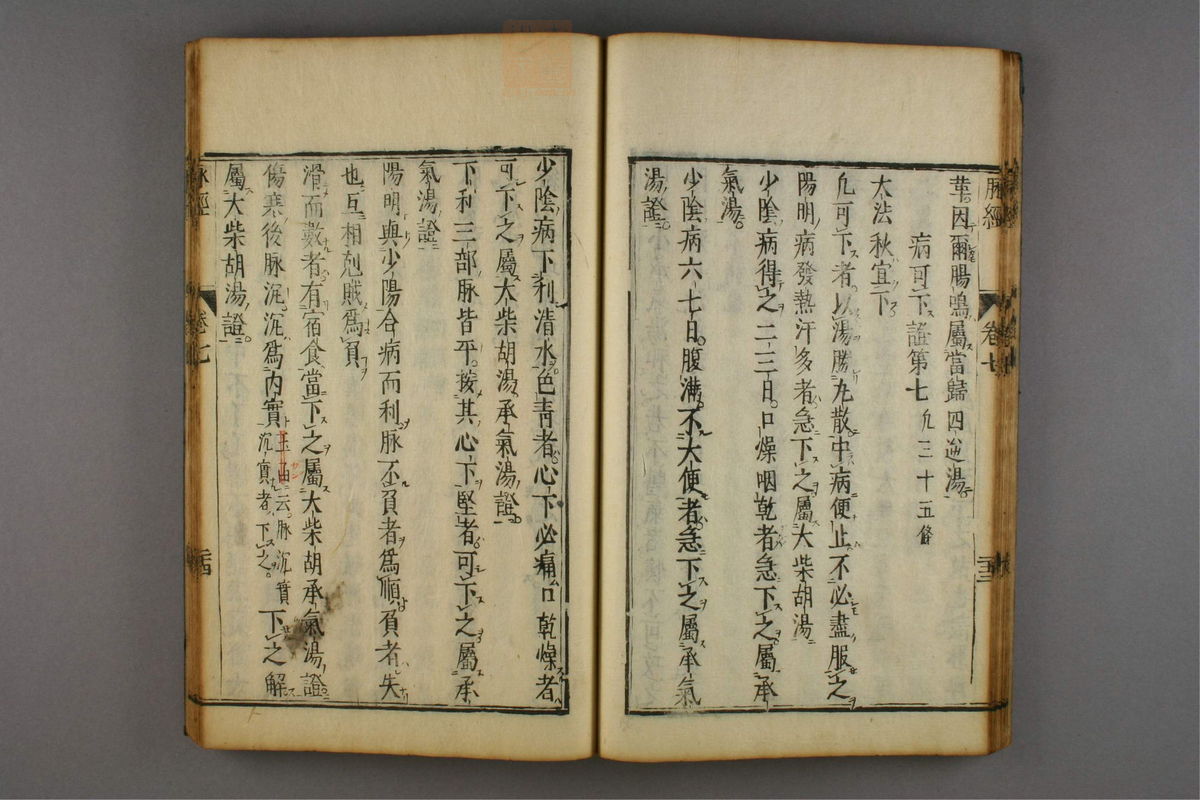 脉經 卷七 二十三
華因爾腸鳴屬當歸四逆湯
病可下證第七 凡三十五條
大法秋宜下
凡可下者以湯勝丸散中病便止不必盡服之
陽明病發熱汗多者急下之屬大柴胡湯
少陰病得之二三日口燥咽乾者急下之屬承
氣湯
少陰病六七日腹滿不大便者急下之屬承氣
湯證
少陰病下利清水色青者心下必痛口乾燥者
可下之屬大柴胡湯承氣湯證
下利三部脉皆平按其心下堅者可下之屬承
氣湯證
陽明與少陽合病而利脉不負者爲順負者失
也互相剋賊爲負
滑而數者有宿食當下之屬大柴胡承氣湯證
傷寒後脉沉沉爲内實玉函云脉沉實沉實者下之下之解
屬大柴胡湯證
脉經 卷七 二十四